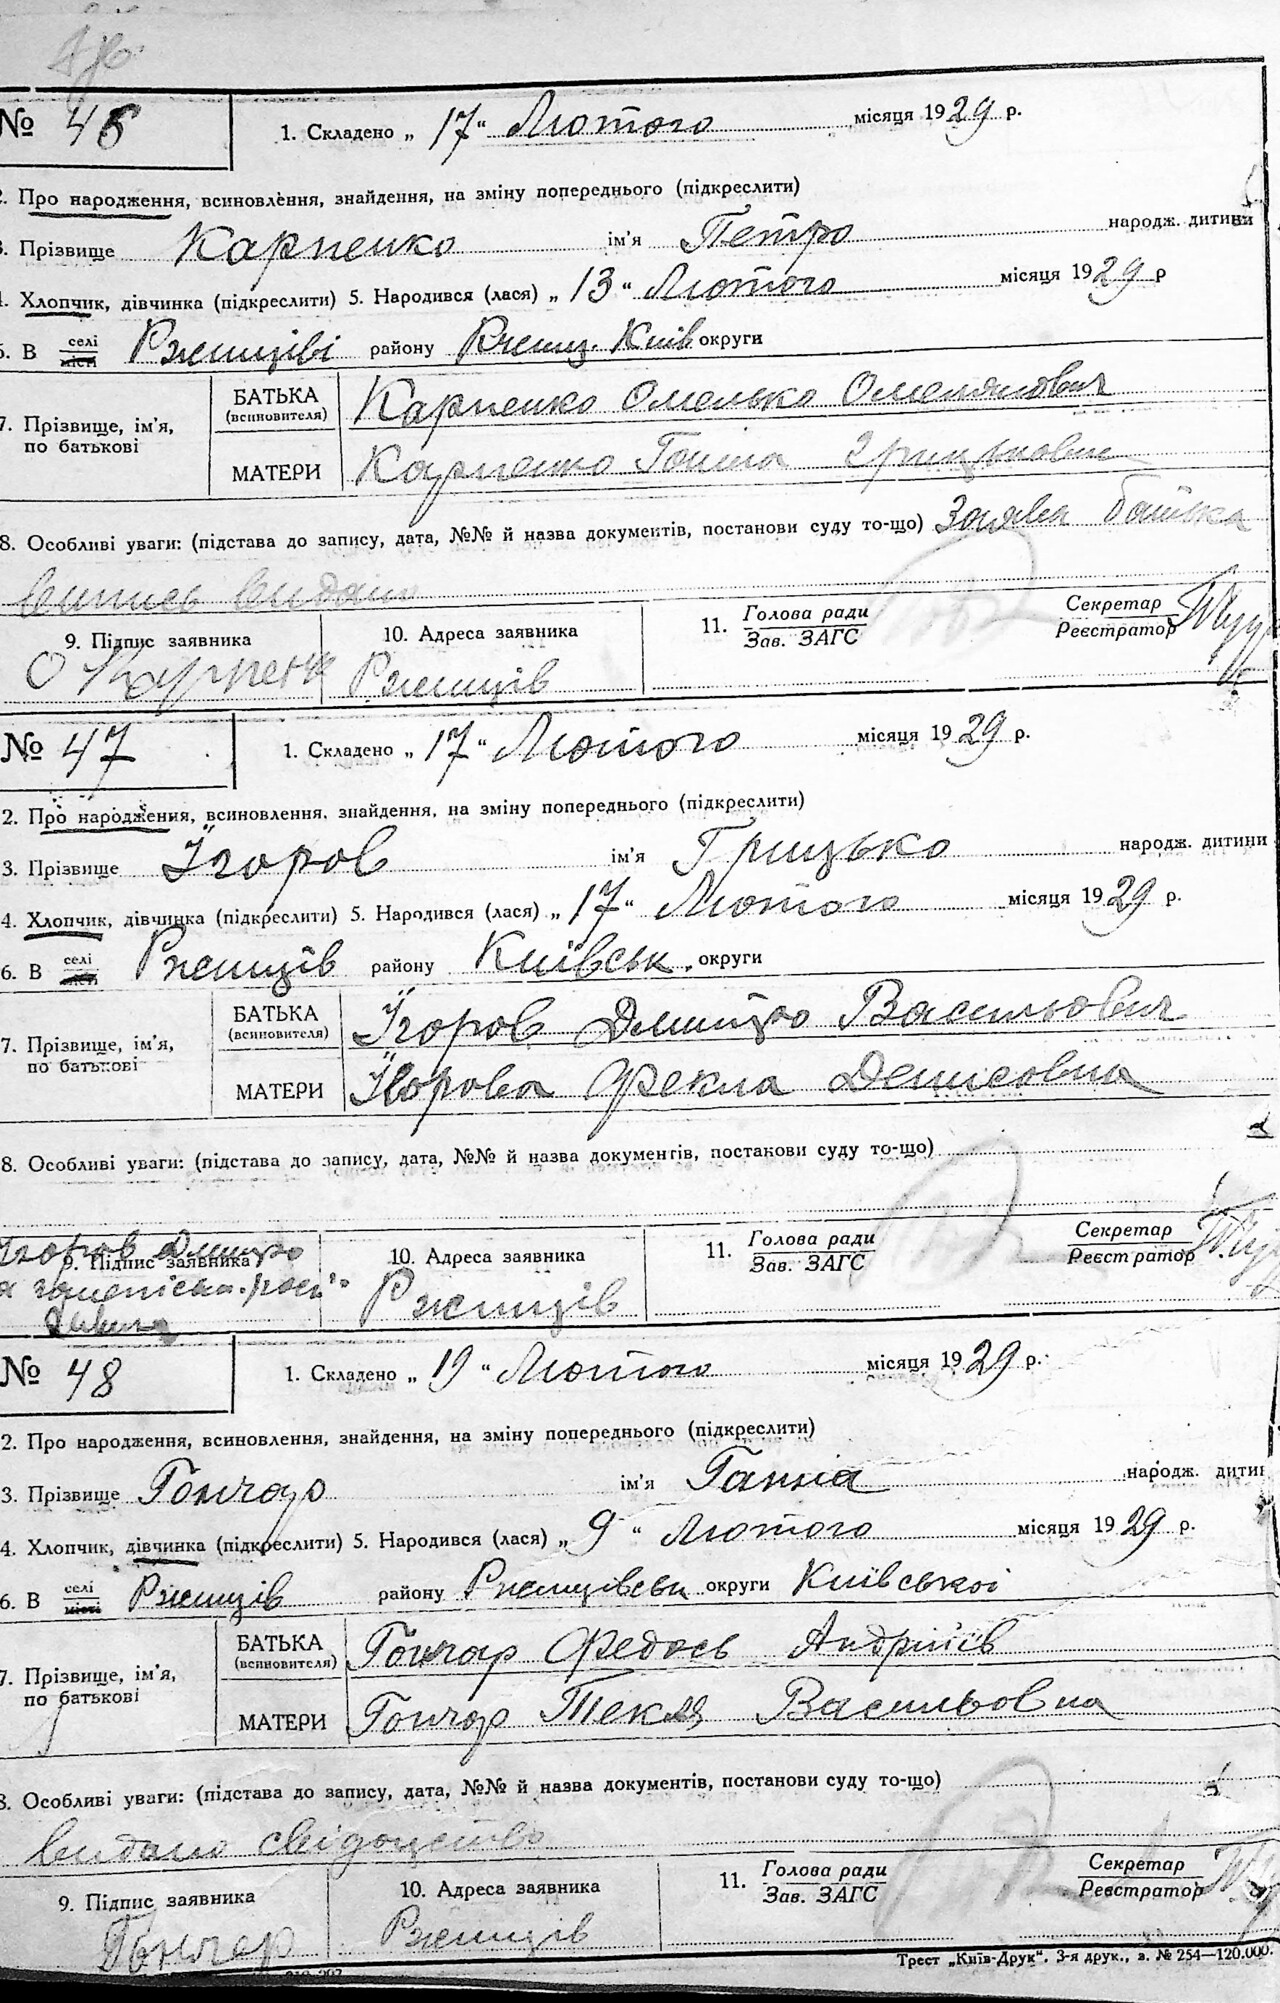 № 46
1. Складено „ 17 “ Лютого місяця 1929 р.
2. Про народження, всиновлення, знайдення, на зміну попереднього (підкреслити)
3. Прізвище Карпенко ім'я Петро народж. дитини
4. Хлопчик, дівчинка (підкреслити) 5. Народився (лася) „ 13 “ Лютого місяця 1929 р
6. В селі місті Ржищіві району Ржищ. Київ округи
7. Прізвище, ім'я, по батькові
БАТЬКА (всиновителя) Карпенко Омелько Омелянович
МАТЕРИ Карпенко Ганна
8. Особливі уваги: (підстава до запису, дата, №№ й назва документів, постанови суду то-що) Заява батька
Випись видано
9. Підпис заявника 10. Адреса заявника 11. Голова ради Зав. ЗАГС Секретар Реєстратор
О Карпенк Ржищів
№ 47
1. Складено „ 17 “ Лютого місяця 1929 р.
2. Про народження, всиновлення, знайдення, на зміну попереднього (підкреслити)
3. Прізвище Їгоров ім'я Грицько народж. дитини
4. Хлопчик, дівчинка (підкреслити) 5. Народився (лася) „ 17 “ Лютого місяця 1929 р.
6. В селі місті Ржищів району Київськ. округи
7. Прізвище, ім'я, по батькові
БАТЬКА (всиновителя) Їгоров Дмитро Васильович
МАТЕРИ Їгорова Фекла Денисовна
8. Особливі уваги: (підстава до запису, дата, №№ й назва документів, постанови суду то-що)
Їгоров Дмитро
9. Підпис заявника 10. Адреса заявника 11. Голова ради Зав. ЗАГС Секретар Реєстратор
Ржищів
№ 48
1. Складено „ 19 “ Лютого місяця 1929 р.
2. Про народження, всиновлення, знайдення, на зміну попереднього (підкреслити)
3. Прізвище Гончар ім'я Ганна народж. дитин
4. Хлопчик, дівчинка (підкреслити) 5. Народився (лася) „ 9 “ Лютого місяця 1929 р.
6. В селі місті Ржищів району Ржищівськ округи Київської
7. Прізвище, ім'я, по батькові
БАТЬКА (всиновителя) Гончар Федось Андріїв
МАТЕРИ Гончар Текля Васильовна
8. Особливі уваги: (підстава до запису, дата, №№ й назва документів, постанови суду то-що)
видано свідоцтво
9. Підпис заявника 10. Адреса заявника 11. Голова ради Зав. ЗАГС Секретар Реєстратор
Гончар Ржищів
Трест „Київ-Друк“. 3-я друк., з. № 254—120.000.